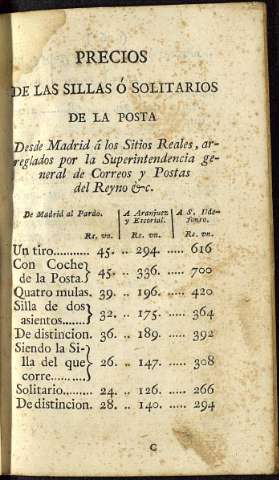 PRECIOS
DE LAS SILLAS Ó SOLITARIOS
DE LA POSTA
Desde Madrid á los Sitios Reales, ar-
reglados por la Superintendencia ge-
neral de Correos y Postas
del Reyno &c.
De Madrid al Pardo. A Aranjuez y Escorial. A S. Ilde-fonso.
Rs. vn. Rs. vn. Rs. vn.
Un tiro........... 45. .. 294. ..... 616
Con Coche
de la Posta. } 45. .. 336. .... 700
Quatro mulas. 39. .. 196. .... 420
Silla de dos
asientos....... } 32. .. 175. .... 364
De distincion. 36. .. 189. .... 392
Siendo la Si-
lla del que
corre.......... } 26. .. 147. .... 308
Solitario........ 24. .. 126. ..... 266
De distincion. 28. .. 140. ..... 294
C